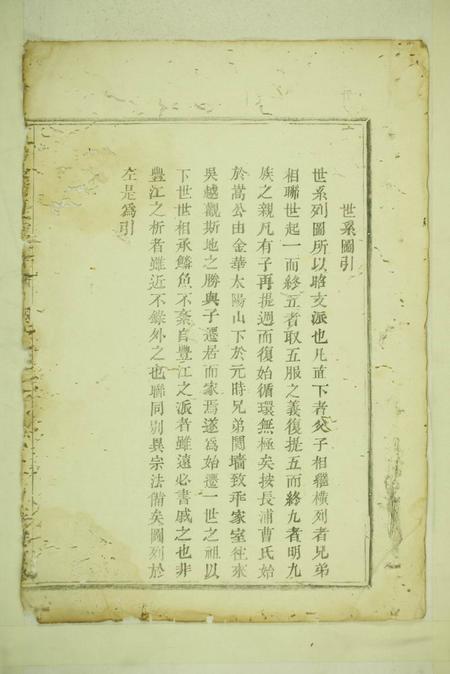 世系圖引
世系列圖所以昭支派也凡直下者父子相繼橫列者兄弟
相聯世起一而終五者取五服之義復提五而終九者明九
族之親凡有子再提週而復始循環無極矣按長浦曹氏始
於嵩公由金華太陽山下於元時兄弟鬩墻致乖家室往來
吳越觀斯地之勝與子遷居而家焉遂爲始遷一世之祖以
下世世相承鱗魚不紊自豐江之派者雖遠必書戚之也非
豐江之析者雖近不錄外之也聯同別異宗法備矣圖列於
左是爲引